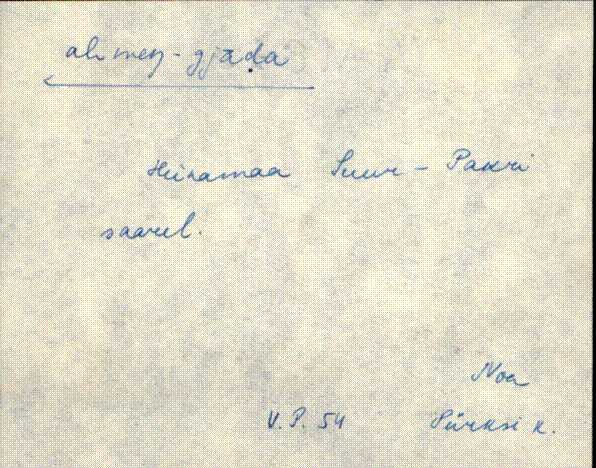 almeŋ-gjāḍa
Heinamaa Suur-Pakri
saarel.
Noa
V.P. 54 Sürksi k.